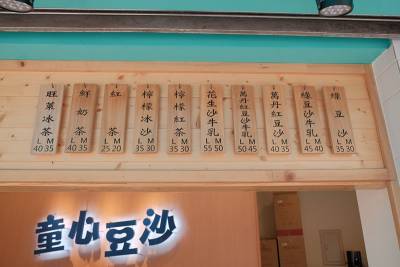 綠豆沙
L M
35 30
綠豆沙牛乳
L M
45 40
萬丹紅豆沙
L M
40 35
萬丹紅豆沙牛乳
L M
50 45
花生沙牛乳
L M
55 50
檸檬紅茶
L M
35 30
檸檬冰沙
L M
35 30
紅茶
L M
25 20
鮮奶茶
L M
40 35
旺萊冰茶
L M
40 35
童心豆沙